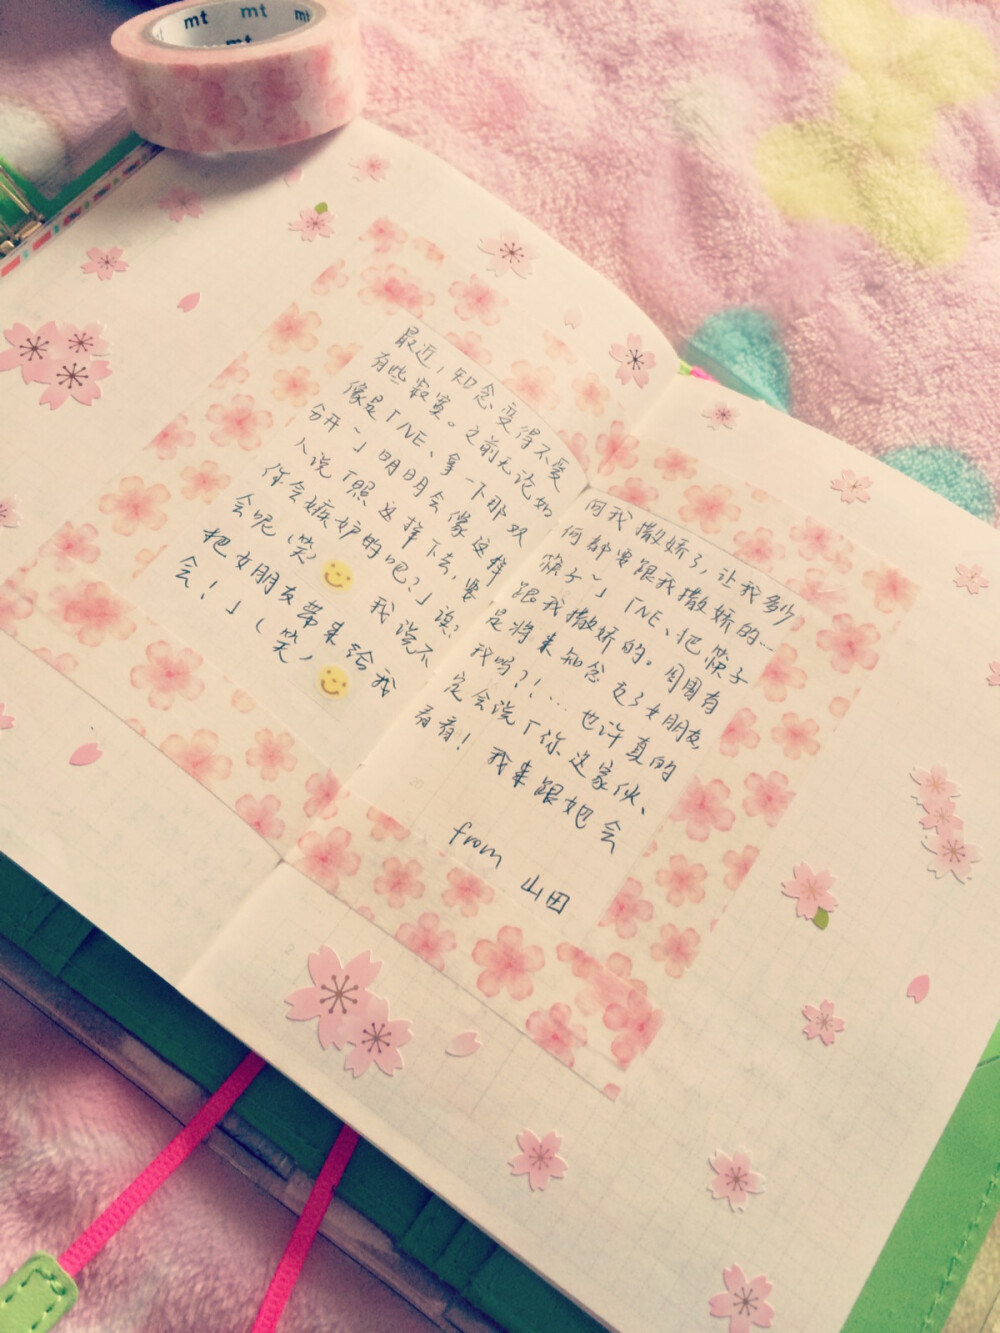 mt mt mt
mt
最近,知念变得不爱向我撒娇了,让我多少
有些寂寞。之前无论如何都要跟我撒娇的…
像是「NE、拿一下那双筷子~」「NE、把筷子
分开~」明明会像这样跟我撒娇的。周围有
人说「照这样下去,要是将来知念交了女朋友
你会嫉妒的吧?」诶?我吗?!…也许真的
会呢(笑) 我说不定会说「你这家伙、
把女朋友带来给我看看!我来跟她会
会!」(笑)
from 山田